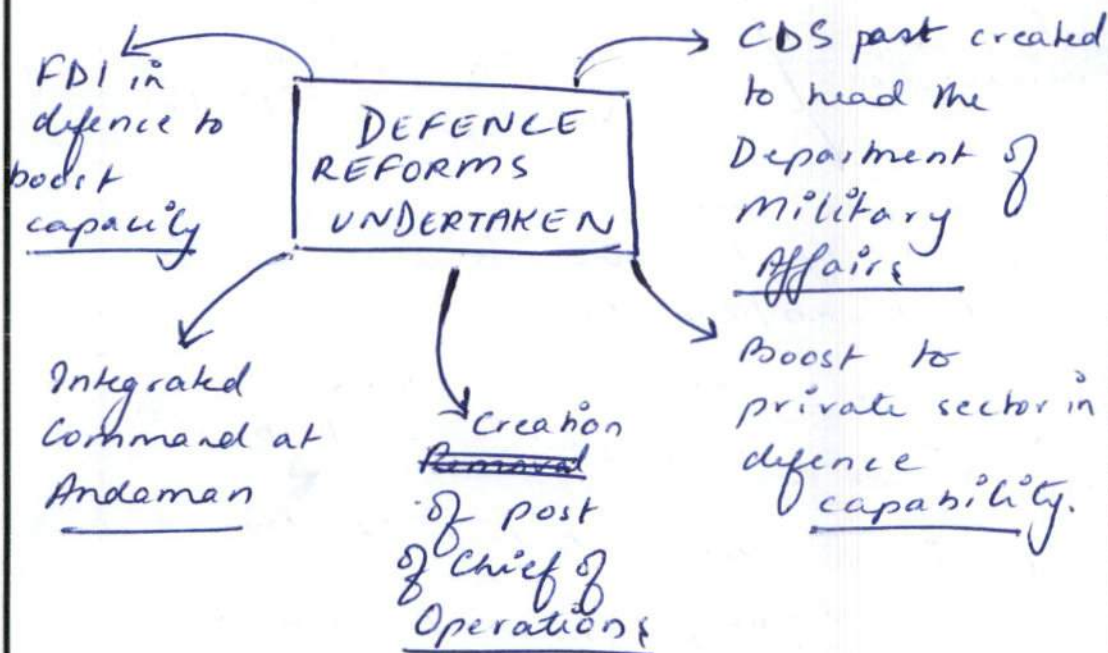 DEFENCE
REFORMS
UNDERTAKEN
FDI in
defence to
boost
capacity
CDS post created
to head the
Department of
Military
Affairs
Integrated
Command at
Andaman
Creation
Removal
of post
of Chief of
Operations
Boost to
private sector in
defence
capability.